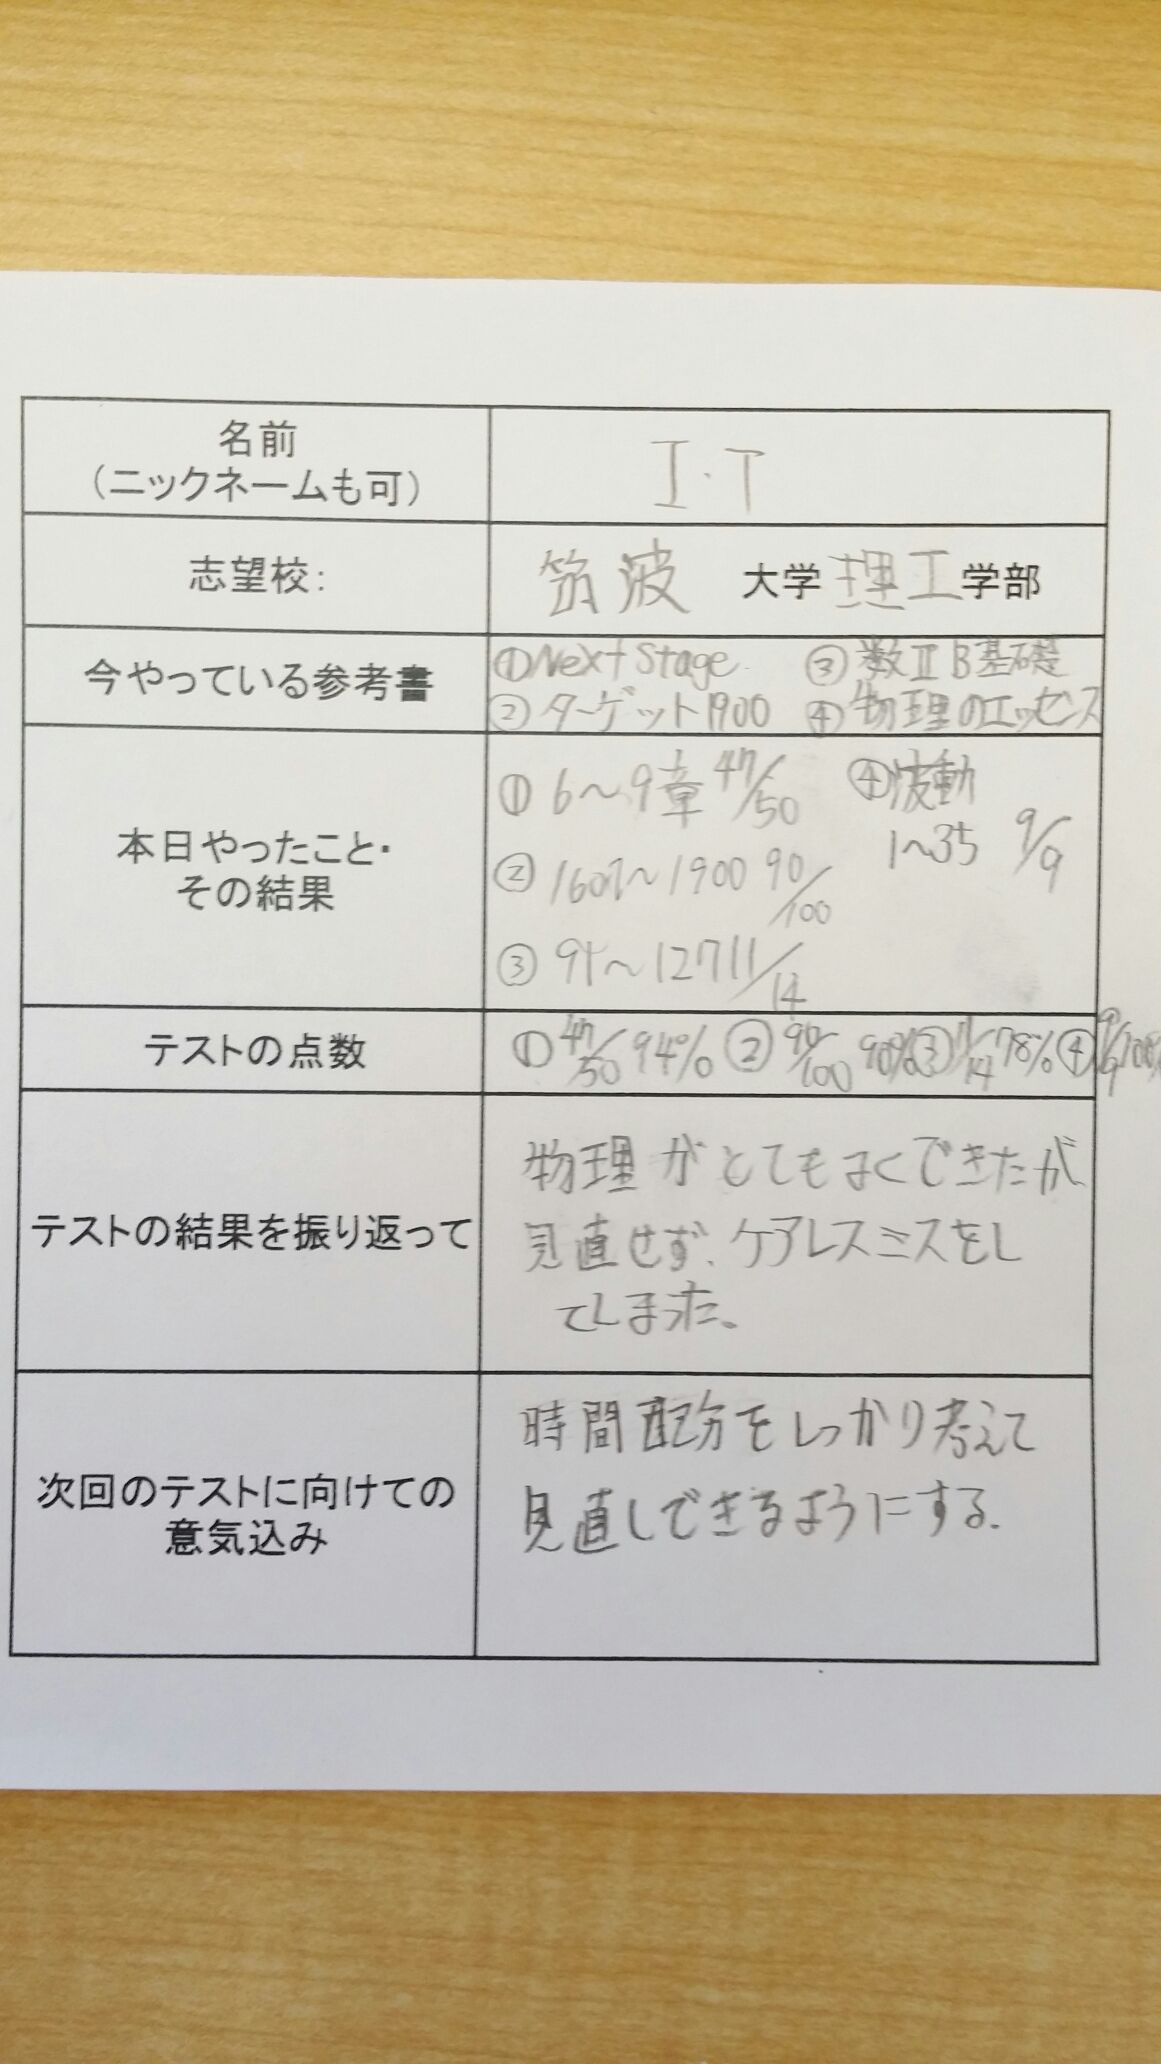 名前
（ニックネームも可）
I・T
志望校：
筑波 大学 理工学部
今やっている参考書
①Next Stage ③数ⅡB基礎
②ターゲット1900 ④物理のエッセンス
本日やったこと・
その結果
①6〜9章 47/50 ④波動
1〜35 9/9
②1601〜1900 90/100
③91〜127 11/14
テストの点数
①47/50 94% ②90/100 90% ③11/14 78% ④9/9 100%
テストの結果を振り返って
物理がとてもよくできたが
見直せず、ケアレスミスをし
てしまった。
次回のテストに向けての
意気込み
時間配分をしっかり考えて
見直しできるようにする.